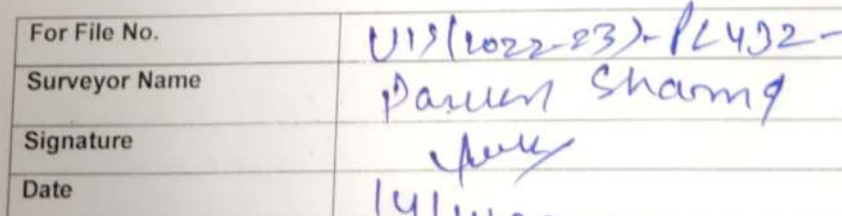 For File No. (2022-23)-PL432-
Surveyor Name Sharma
Signature
Date